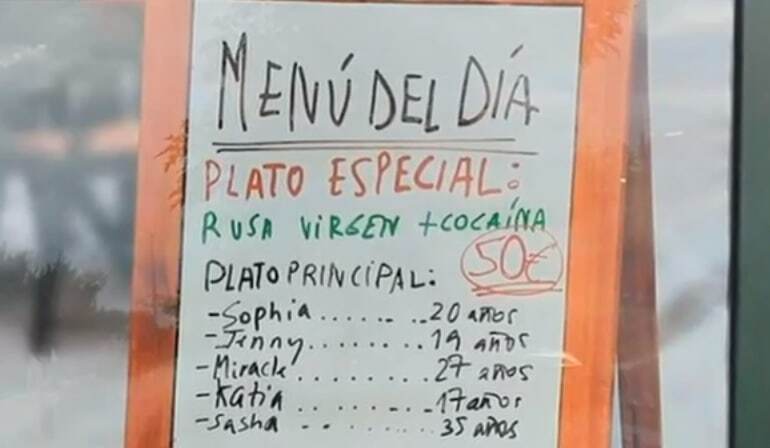 MENÚ DEL DÍA
PLATO ESPECIAL:
RUSA VIRGEN + COCAÍNA
50€
PLATO PRINCIPAL:
-Sophia......... 20 años
-Jenny......... 19 años
-Miracle......... 27 años
-Katia......... 17 años
-Sasha......... 35 años